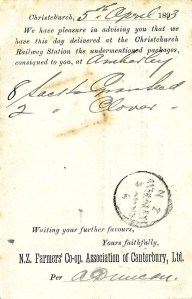 Christchurch, 5th April 1893
We have pleasure in advising you that we
have this day delivered at the Christchurch
Railway Station the undermentioned packages,
consigned to you, at Amberley
8 Sacks Grass Seed
2 " Clover "
N Z
Waiting your further favours,
Yours faithfully,
N.Z. Farmers' Co-op. Association of Canterbury, Ltd.
Per A Duncan